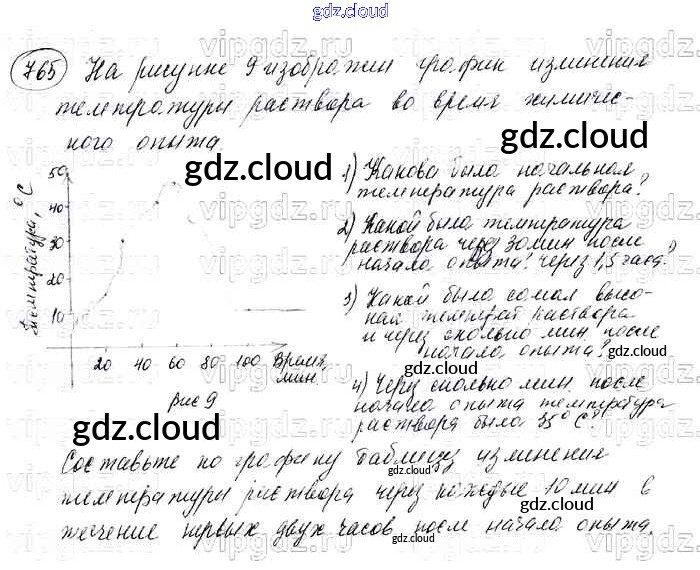 gdz.cloud
765 На рисунке 9 изображен график изменения
температуры раствора во время химичес-
ного опыта.
gdz.cloud
50
40
30
20
10
Температура, °C
20 40 60 80 100 Время,
мин.
рис 9
1) Какова была начальная
температура раствора?
2) Какой была температура
раствора через 30 мин после
начала опыта? через 1,5 часа?
3) Какой была самая высо-
кая температ раствора
и через сколько мин после
начала опыта?
gdz.cloud
4) Через сколько мин после
начала опыта температура
раствора была 35° C?
gdz.cloud
Составьте по графику таблицу изменения
gdz.cloud
температуры раствора через каждые 10 мин в
течение первых двух часов после начала опыта.
gdz.cloud
vipgdz.ru